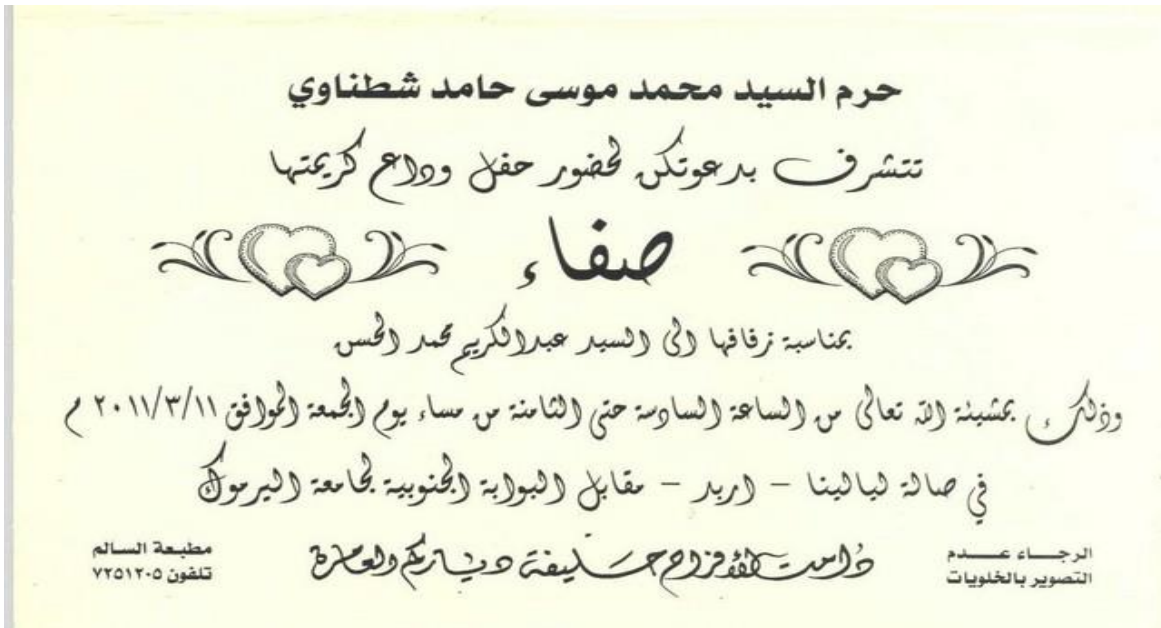 حرم السيد محمد موسى حامد شطناوي
تتشرف بدعوتكن لحضور حفل وداع كريمتها
صفاء
بمناسبة زفافها الى السيد عبدالكريم محمد الحسن
وذلك بمشيئة الله تعالى من الساعة السادسة حتى الثامنة من مساء يوم الجمعة الموافق ٢٠١١/٣/١١ م
في صالة ليالينا - اربد - مقابل البوابة الجنوبية لجامعة اليرموك
دامت الأفراح حليفة دياركم العامرة
الرجاء عدم
التصوير بالخلويات
مطبعة السالم
تلفون ٧٢٥١٢٠٥